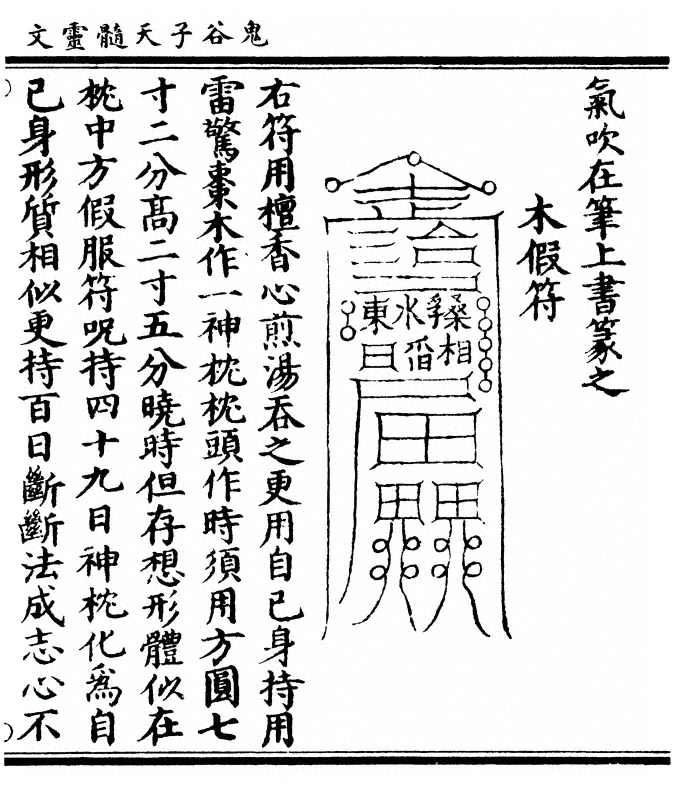 鬼谷子天髓靈文
氣吹在筆上書篆之
木假符
右符用檀香心煎湯吞之更用自己身持用
雷驚棗木作一神枕枕頭作時須用方圓七
寸二分髙二寸五分曉時但存想形體似在
枕中方假服符呪持四十九日神枕化爲自
己身形質相似更持百日斷斷法成志心不